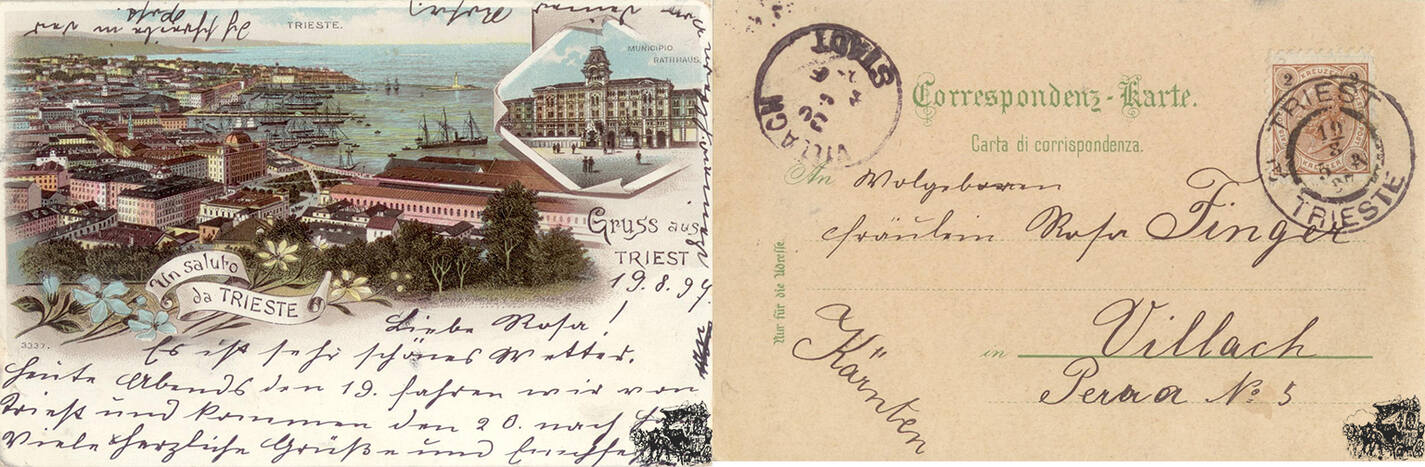 TRIESTE.
MUNICIPIO
RATHHAUS.
Gruss aus
TRIEST
Un saluto
da TRIESTE
3337.
19.8.97.
Liebe Rosa!
Es ist sehr schönes Wetter.
Heute Abends den 19. fahren wir von
Triest und kommen den 20. nach
Viele herzliche Grüße und
Correspondenz-Karte.
Carta di corrispondenza.
An Wolgeboren
Fräulein Rosa Finger
in Villach
Perau No 5
Kärnten
Nur für die Adresse.
VILLACH
STADT
2 KREUZER 2
TRIEST
19
8
97
TRIESTE